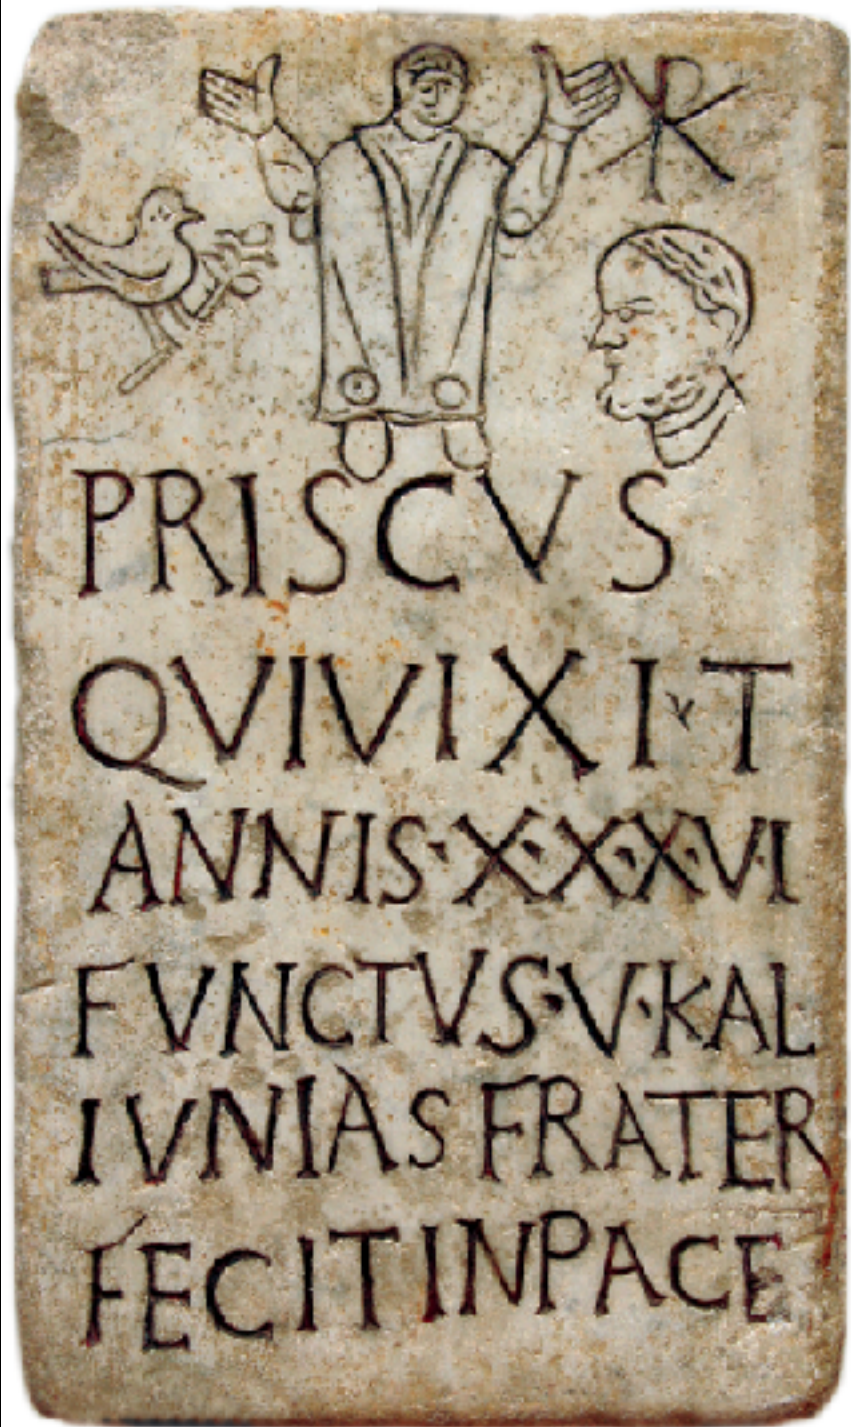 ☧
PRISCVS
QVIVIXI·T
ANNIS·X·X·X·VI
FVNCTVS·V·KAL
IVNIAS FRATER
FECIT IN PACE